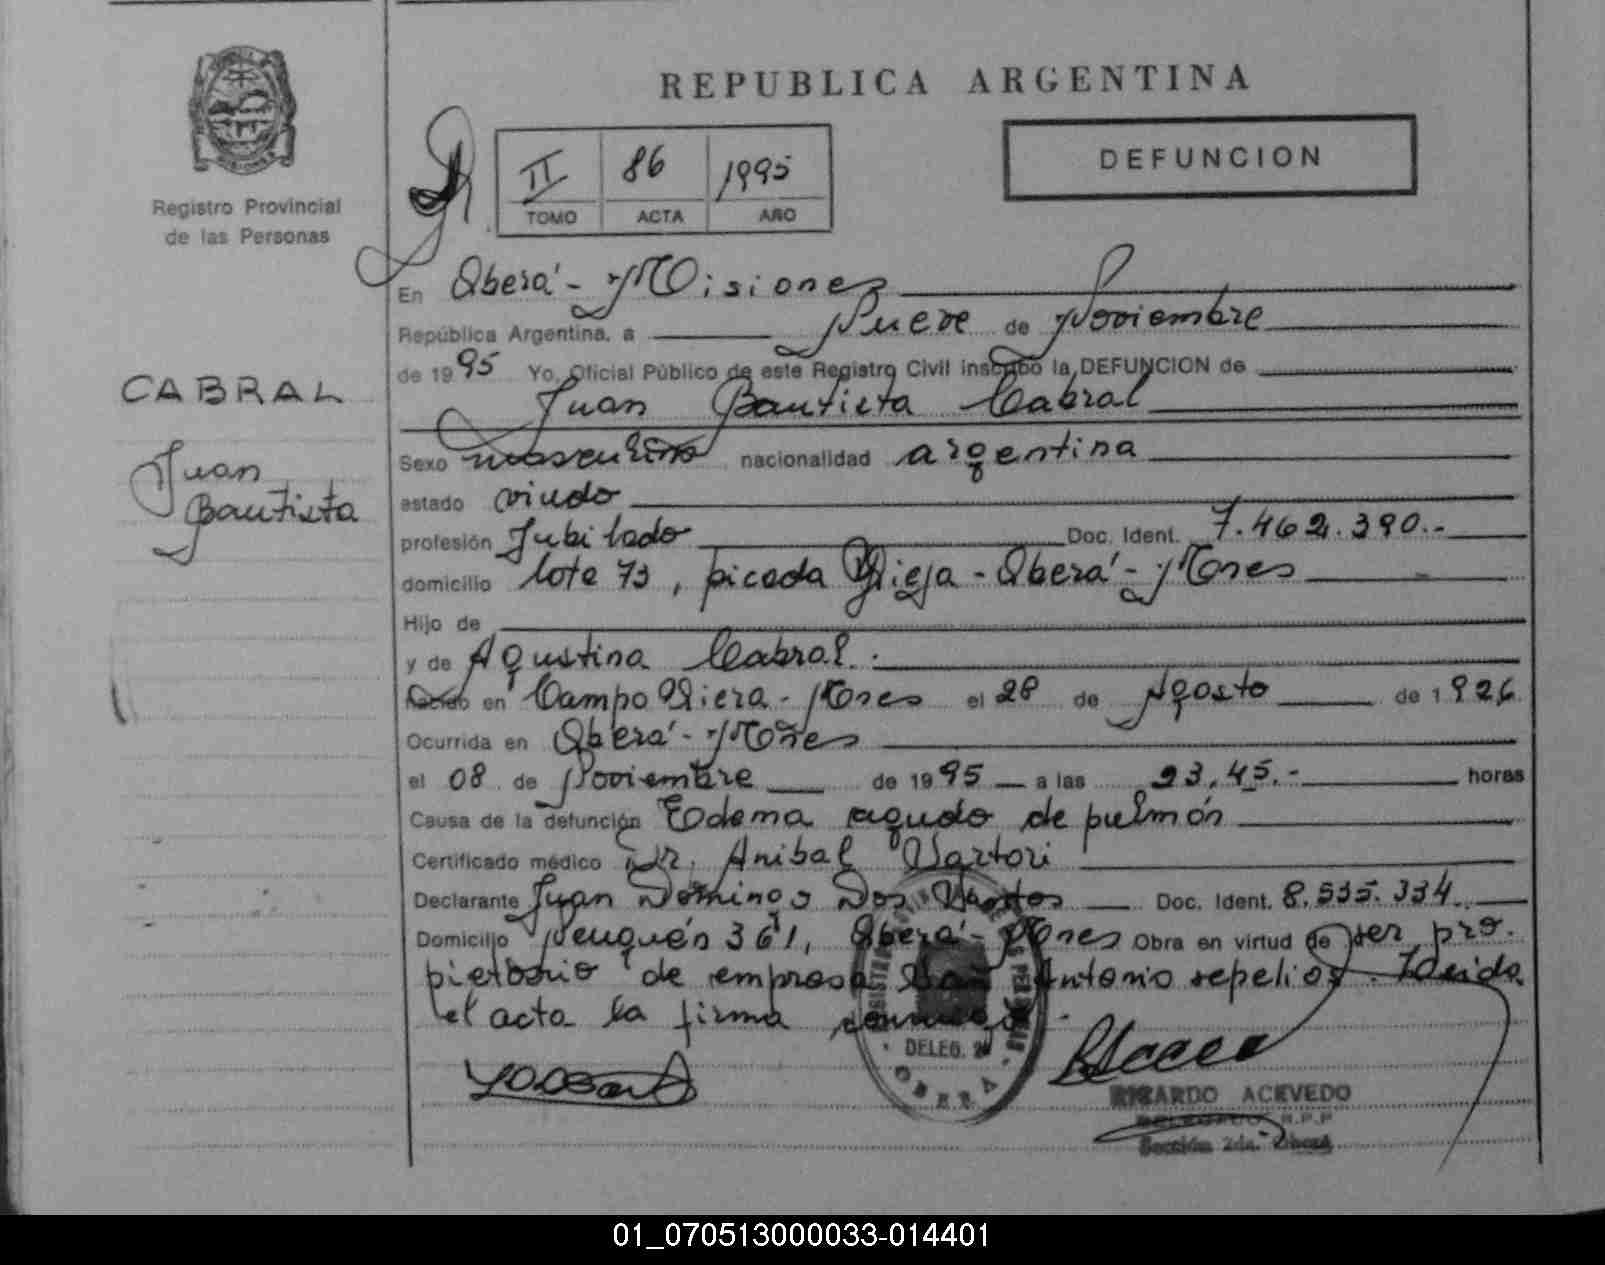 REPUBLICA ARGENTINA
DEFUNCION
II 86 1995
TOMO ACTA AÑO
Registro Provincial
de las Personas
CABRAL
Juan
Bautista
En Oberá - Misiones
República Argentina, a Nueve de Noviembre
de 1995 Yo, Oficial Público de este Registro Civil inscribo la DEFUNCION de
Juan Bautista Cabral
Sexo masculino nacionalidad argentina
estado viudo
profesión Jubilado Doc. Ident. 7.462.390.-
domicilio lote 73, picada Vieja - Oberá - Mnes
Hijo de
y de Agustina Cabral.
Nacido en Campo Viera - Mnes el 28 de Agosto de 1926
Ocurrida en Oberá - Mnes
el 08 de Noviembre de 1995 a las 23,45.- horas
Causa de la defunción Edema agudo de pulmón
Certificado médico Dr. Anibal Sartori
Declarante Juan Domingo Dos Santos Doc. Ident. 8.535.334.
Domicilio Neuquén 361, Oberá - Mnes Obra en virtud de ser pro.
pietario de empresa San Antonio sepelios. Leida
el acta la firma
DELEG.
OBERA
RICARDO ACEVEDO
DELEGADO R.P.P
Sección 2da. - Oberá
01_070513000033-014401